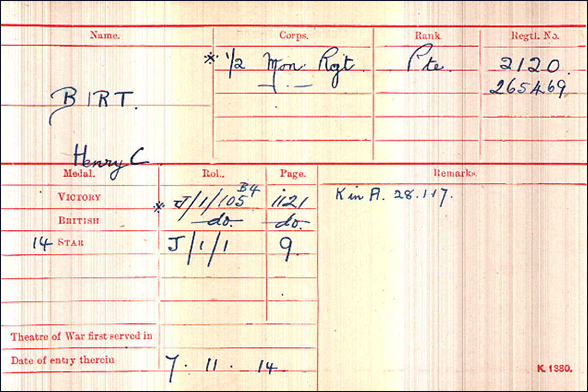 Name. Corps. Rank. Regtl. No.
* 1/2 Mon. Rgt Pte. 2120.
265469
BIRT.
Henry C
Medal. Roll. Page. Remarks.
VICTORY * J/1/105 B4 1121 K in A. 28.1.17.
BRITISH do. do.
14 STAR J/1/1 9.
Theatre of War first served in
Date of entry therein 7. 11. 14
K 1380.